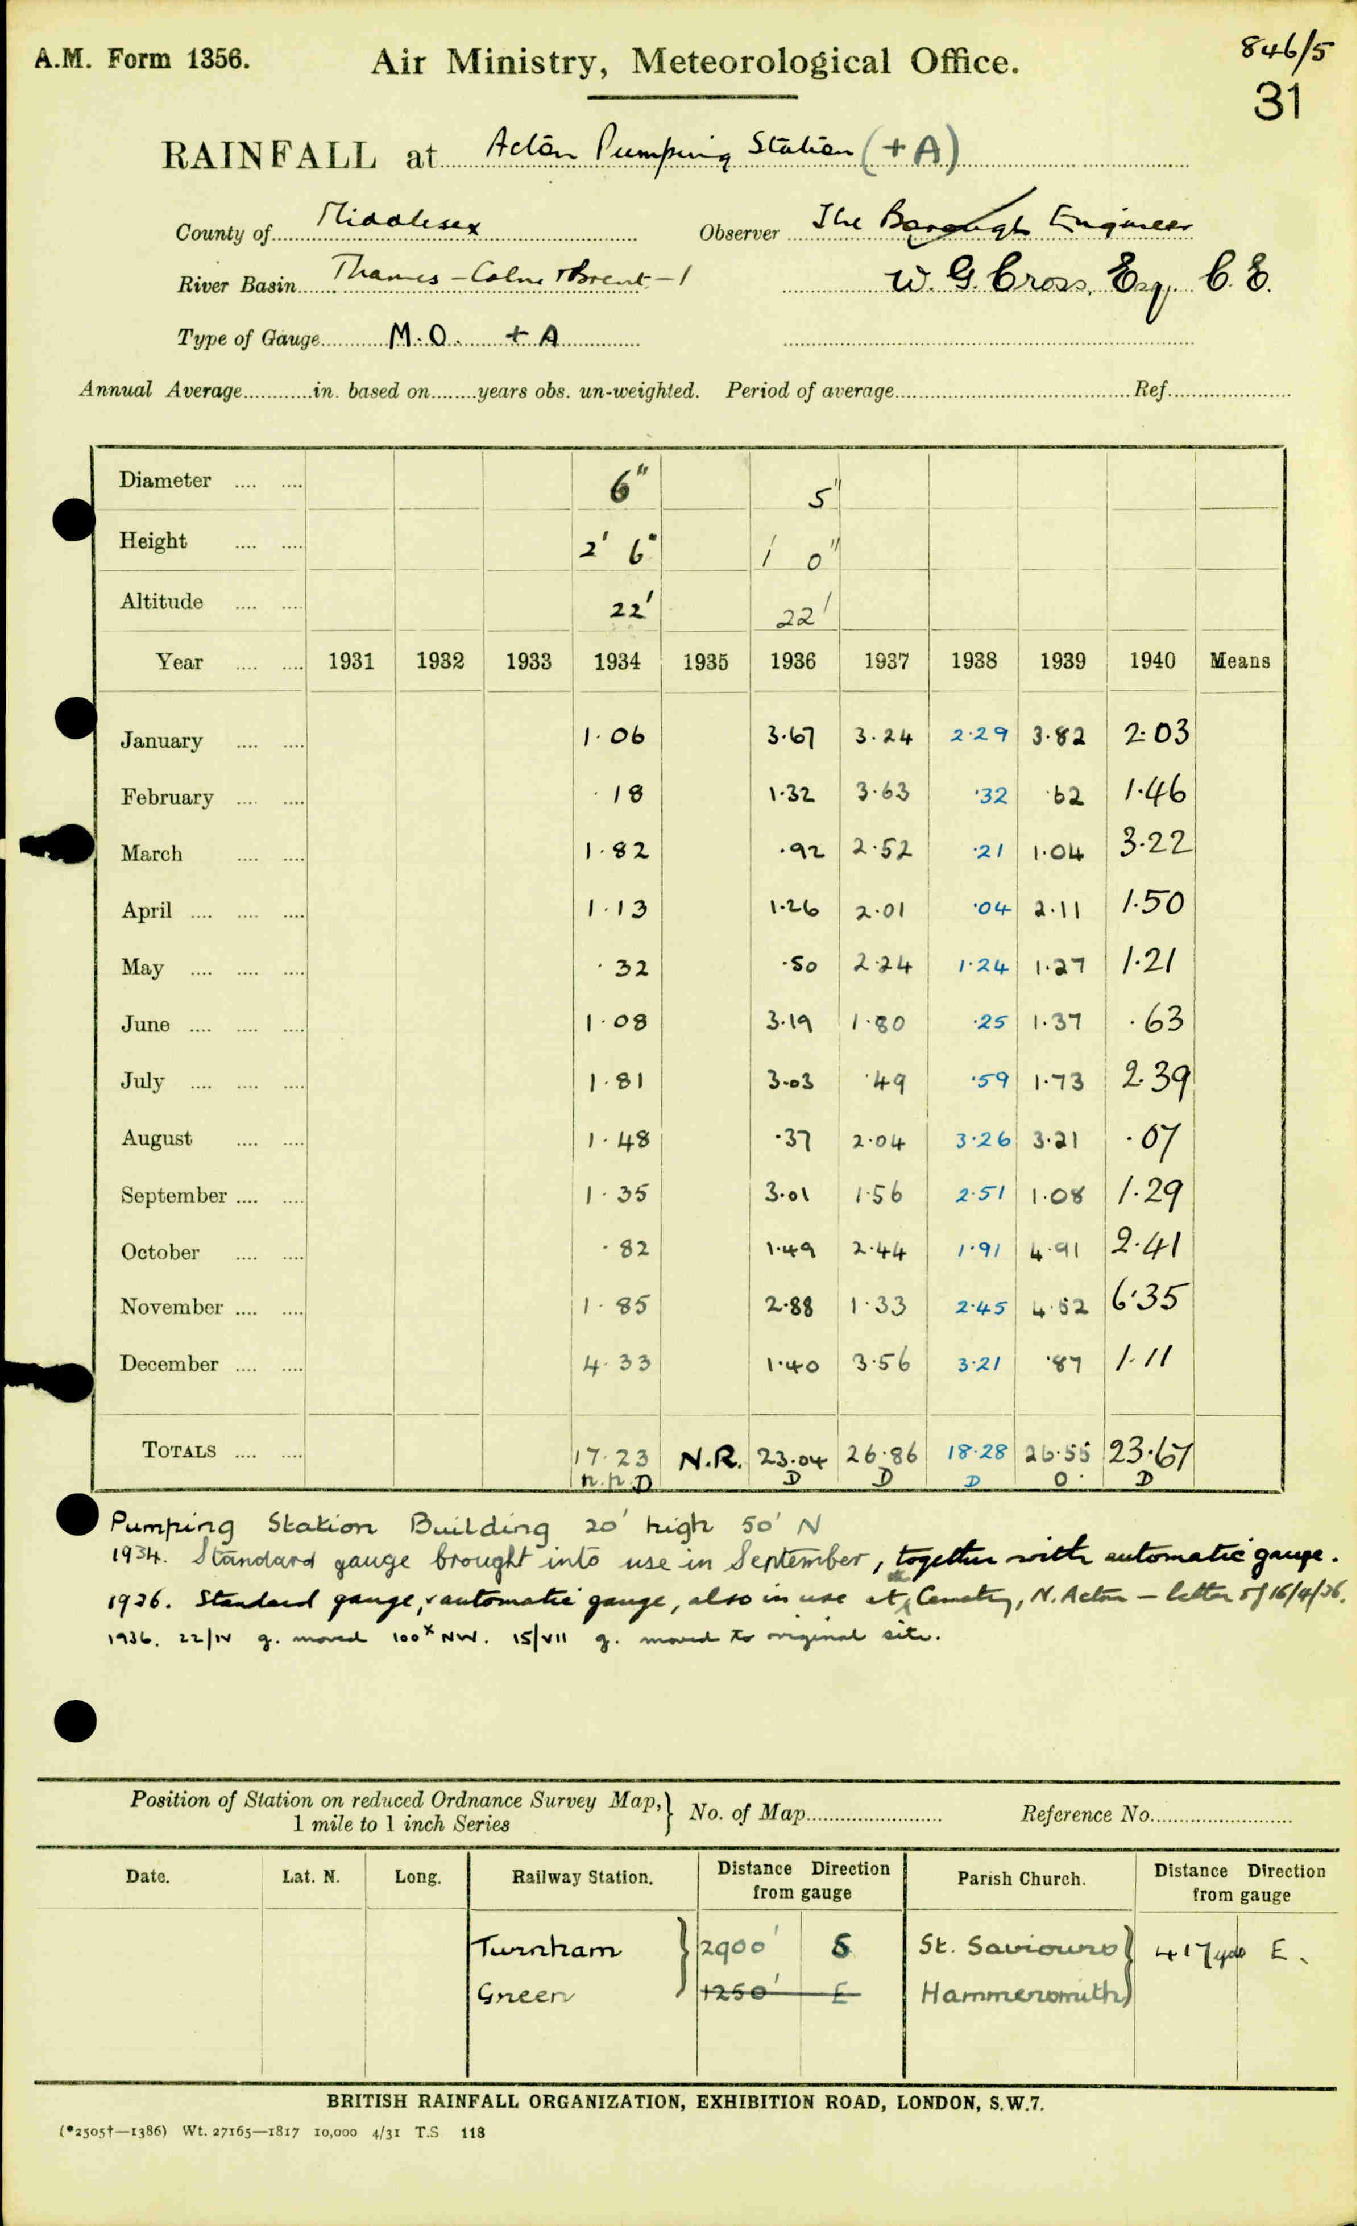 A.M. Form 1356. Air Ministry, Meteorological Office. 846/5
31
RAINFALL at Acton Pumping Station (+A)
County of Middlesex Observer The Borough Engineer
River Basin Thames - Colne & Brent - 1 W. G. Cross, Esq. C.E.
Type of Gauge M.O. + A
Annual Average in. based on years obs. un-weighted. Period of average Ref.
Diameter 6" 5"
Height 2' 6" 1 0"
Altitude 22' 22'
Year 1931 1932 1933 1934 1935 1936 1937 1938 1939 1940 Means
January 1.06 3.67 3.24 2.29 3.82 2.03
February .18 1.32 3.63 .32 .62 1.46
March 1.82 .92 2.52 .21 1.04 3.22
April 1.13 1.26 2.01 .04 2.11 1.50
May .32 .50 2.24 1.24 1.27 1.21
June 1.08 3.19 1.80 .25 1.37 .63
July 1.81 3.03 .49 .59 1.73 2.39
August 1.48 .37 2.04 3.26 3.21 .07
September 1.35 3.01 1.56 2.51 1.08 1.29
October .82 1.49 2.44 1.91 4.91 2.41
November 1.85 2.88 1.33 2.45 4.52 6.35
December 4.33 1.40 3.56 3.21 .87 1.11
TOTALS 17.23 N.R. 23.04 26.86 18.28 26.55 23.67
n.p. D D D D O. D
Pumping Station Building 20' high 50' N
1934. Standard gauge brought into use in September, together with automatic gauge.
1936. Standard gauge, & automatic gauge, also in use at Cemetery, N. Acton - letter of 16/4/36.
1936. 22/IV g. moved 100x NW. 15/VII g. moved to original site.
Position of Station on reduced Ordnance Survey Map, } No. of Map Reference No.
1 mile to 1 inch Series
Date. Lat. N. Long. Railway Station. Distance Direction from gauge Parish Church. Distance Direction from gauge
Turnham } 2900' S St. Saviours } 417 yds E.
Green 1250' E Hammersmith
BRITISH RAINFALL ORGANIZATION, EXHIBITION ROAD, LONDON, S.W.7.
(*2505†—1386) Wt. 27165—1817 10,000 4/31 T.S 118